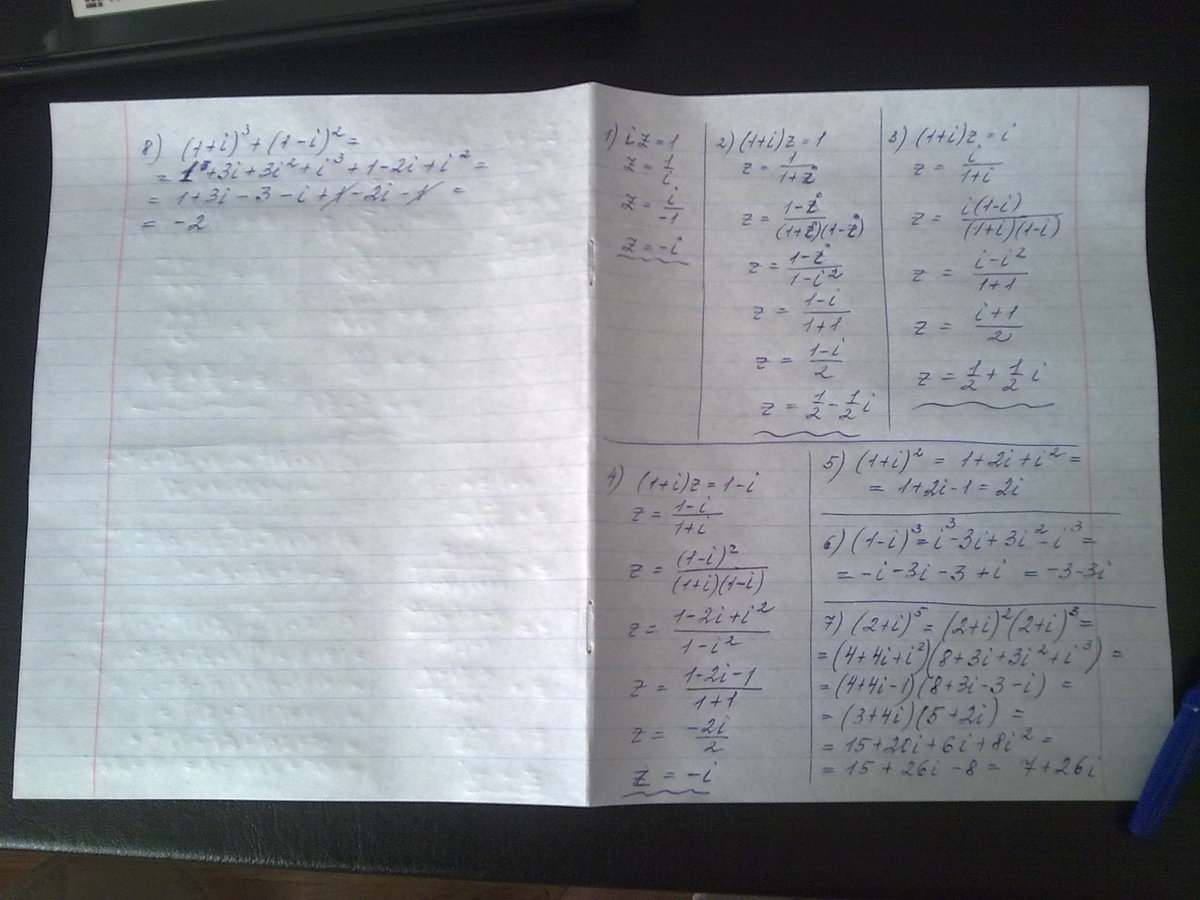 8) (1+i)³+(1-i)²=
= 1³+3i+3i²+i³+1-2i+i²=
= 1+3i-3-i+1-2i-1 =
= -2
1) iz=1
z=1/i
z=i/-1
z=-i
2) (1+i)z=1
z=1/(1+i)
z=(1-i)/((1+i)(1-i))
z=(1-i)/(1-i²)
z = (1-i)/(1+1)
z = (1-i)/2
z = 1/2-1/2i
3) (1+i)z=i
z = i/(1+i)
z = i(1-i)/((1+i)(1-i))
z = (i-i²)/(1+1)
z = (i+1)/2
z = 1/2+1/2 i
4) (1+i)z=1-i
z = (1-i)/(1+i)
z = (1-i)²/((1+i)(1-i))
z = (1-2i+i²)/(1-i²)
z = (1-2i-1)/(1+1)
z = -2i/2
z = -i
5) (1+i)² = 1+2i+i²=
= 1+2i-1=2i
6) (1-i)³=i³-3i+3i²-i³=
= -i-3i-3+i = -3-3i
7) (2+i)⁵=(2+i)²(2+i)³=
=(4+4i+i²)(8+3i+3i²+i³) =
=(4+4i-1)(8+3i-3-i) =
=(3+4i)(5+2i) =
=15+20i+6i+8i²=
=15+26i-8= 7+26i